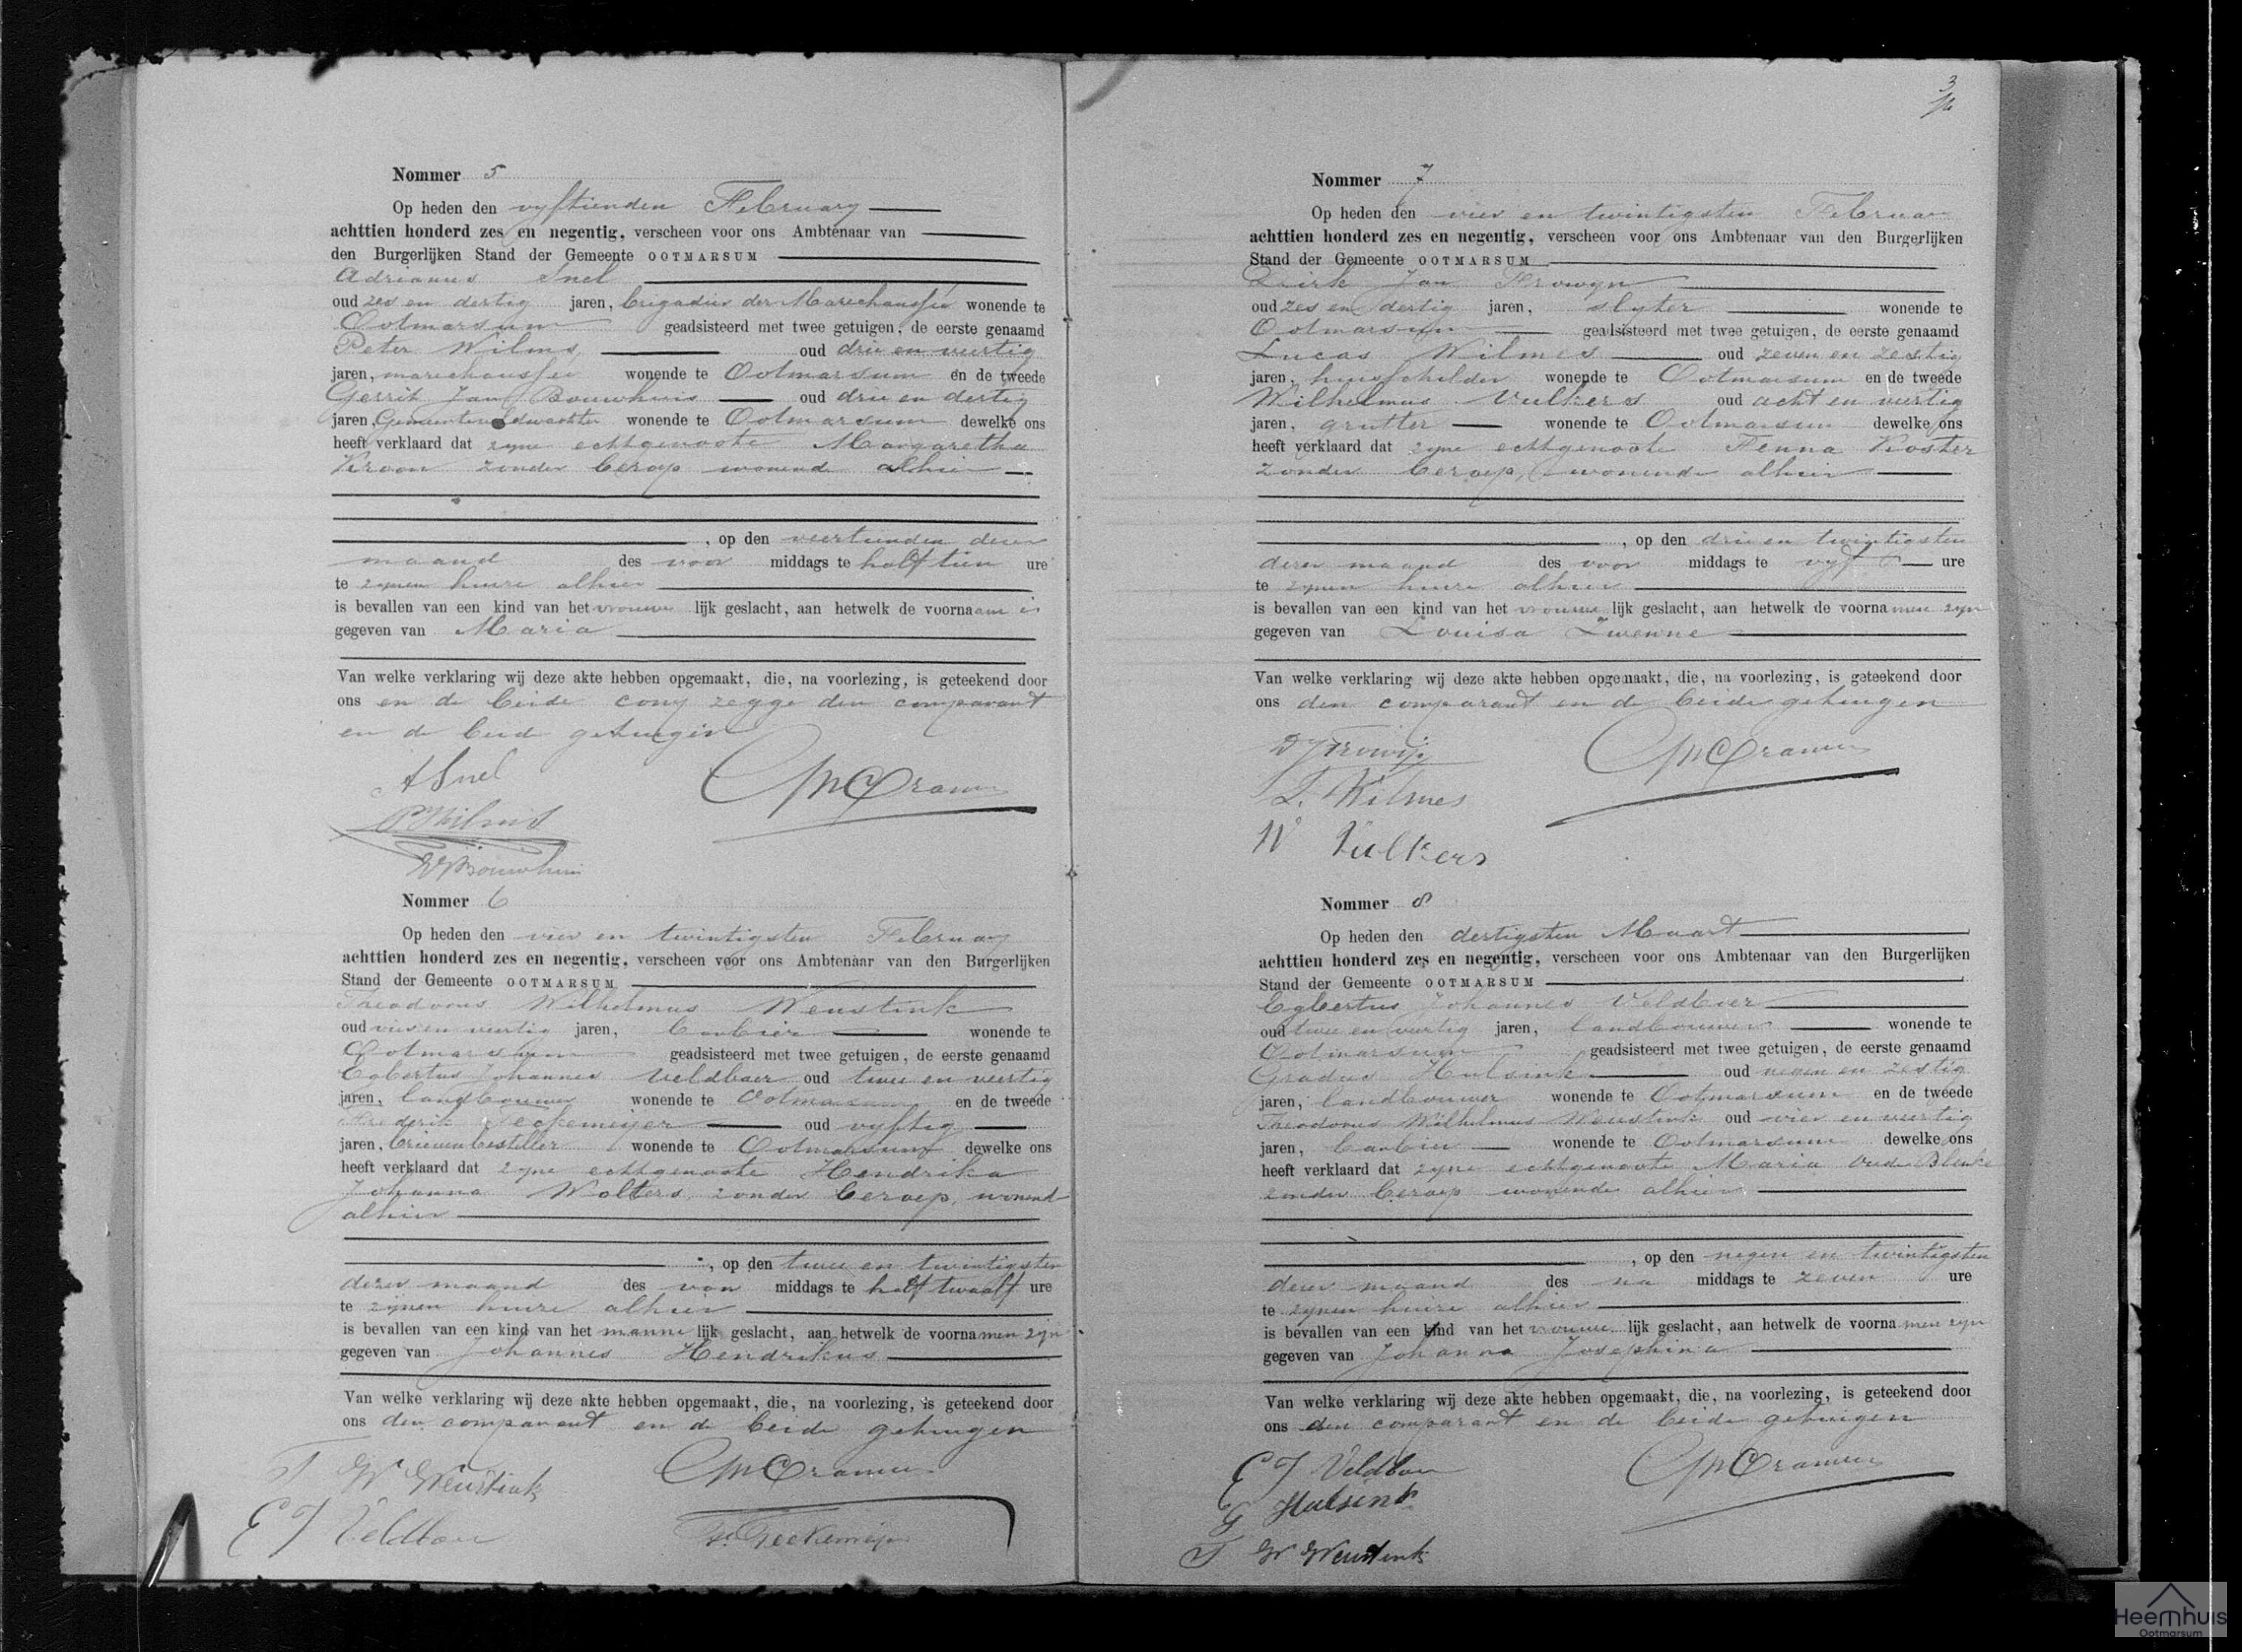 Nommer 5
Op heden den vyftienden February
achttien honderd zes en negentig, verscheen voor ons Ambtenaar van
den Burgerlijken Stand der Gemeente OOTMARSUM
Adrianus Snel
oud zes en dertig jaren, brigadier der Marechaussée wonende te
Ootmarsum geadsisteerd met twee getuigen, de eerste genaamd
Peter Wilms oud drie en veertig
jaren, marechaussee wonende te Ootmarsum en de tweede
Gerrit Jan Bouwhuis oud drie en dertig
jaren, Gemeenteveldwachter wonende te Ootmarsum dewelke ons
heeft verklaard dat zyne echtgenoote Margaretha
Kroon zonder beroep wonende alhier
, op den veertienden dezer
maand des voor middags te half tien ure
te zynen huize alhier
is bevallen van een kind van het vrouwe lijk geslacht, aan hetwelk de voornaam is
gegeven van Maria
Van welke verklaring wij deze akte hebben opgemaakt, die, na voorlezing, is geteekend door
ons en de beide comp zegge den comparant
en de beide getuigen
A Snel
CM Cramer
P Wilms
GJ Bouwhuis
Nommer 6
Op heden den vier en twintigsten February
achttien honderd zes en negentig, verscheen voor ons Ambtenaar van den Burgerlijken
Stand der Gemeente OOTMARSUM
Theodorus Wilhelmus Weustink
oud vier en veertig jaren, barbier wonende te
Ootmarsum geadsisteerd met twee getuigen, de eerste genaamd
Egbertus Johannes Veldboer oud twee en veertig
jaren, landbouwer wonende te Ootmarsum en de tweede
Frederik Teckemeijer oud vyftig
jaren, brievenbesteller wonende te Ootmarsum dewelke ons
heeft verklaard dat zyne echtgenoote Hendrika
Johanna Wolters, zonder beroep, wonend
alhier
, op den twee en twintigsten
dezer maand des voor middags te half twaalf ure
te zijnen huize alhier
is bevallen van een kind van het manne lijk geslacht, aan hetwelk de voornamen zijn
gegeven van Johannes Hendrikus
Van welke verklaring wij deze akte hebben opgemaakt, die, na voorlezing, is geteekend door
ons den comparant en de beide getuigen
T W Weustink
CM Cramer
E J Veldboer
Fr. Teckemeijer
3
Nommer 7
Op heden den vier en twintigsten Februar
achttien honderd zes en negentig, verscheen voor ons Ambtenaar van den Burgerlijken
Stand der Gemeente OOTMARSUM
Dirk Jan Frowyn
oud zes en dertig jaren, slyter wonende te
Ootmarsum geadsisteerd met twee getuigen, de eerste genaamd
Lucas Wilmes oud zeven en zestig
jaren, huisschilder wonende te Ootmarsum en de tweede
Wilhelmus Vulkers oud acht en veertig
jaren, grutter wonende te Ootmarsum dewelke ons
heeft verklaard dat zyne echtgenoote Fenna Koster
zonder beroep, wonende alhier
, op den drie en twintigsten
dezer maand des voor middags te vyf ure
te zynen huize alhier
is bevallen van een kind van het vrouwe lijk geslacht, aan hetwelk de voornamen zyn
gegeven van Louisa Zwenne
Van welke verklaring wij deze akte hebben opgemaakt, die, na voorlezing, is geteekend door
ons den comparant en de beide getuigen
DJ Frowijn
CM Cramer
L. Wilmes
W Vulkers
Nommer 8
Op heden den dertigsten Maart
achttien honderd zes en negentig, verscheen voor ons Ambtenaar van den Burgerlijken
Stand der Gemeente OOTMARSUM
Egbertus Johannes Veldboer
oud twee en veertig jaren, landbouwer wonende te
Ootmarsum geadsisteerd met twee getuigen, de eerste genaamd
Gradus Hulsink oud negen en zestig
jaren, landbouwer wonende te Ootmarsum en de tweede
Theodorus Wilhelmus Weustink oud vier en veertig
jaren, barbier wonende te Ootmarsum dewelke ons
heeft verklaard dat zyne echtgenoote Maria Oude Blenke
zonder beroep wonende alhier
, op den negen en twintigsten
dezer maand des na middags te zeven ure
te zynen huize alhier
is bevallen van een kind van het vrouwe lijk geslacht, aan hetwelk de voornamen zyn
gegeven van Johanna Josephina
Van welke verklaring wij deze akte hebben opgemaakt, die, na voorlezing, is geteekend door
ons den comparant en de beide getuigen
E J Veldboer
CM Cramer
G Hulsink
T W Weustink
Heemhuis
Ootmarsum